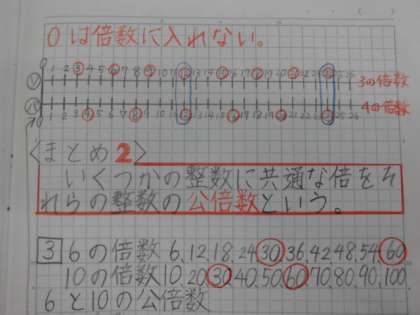 0は倍数に入れない。
3の倍数
4の倍数
<まとめ2>
いくつかの整数に共通な倍をそ
れらの整数の公倍数という。
3 6の倍数 6.12.18.24.30.36.42.48.54.60
10の倍数10.20.30.40.50.60.70.80.90.100
6と10の公倍数